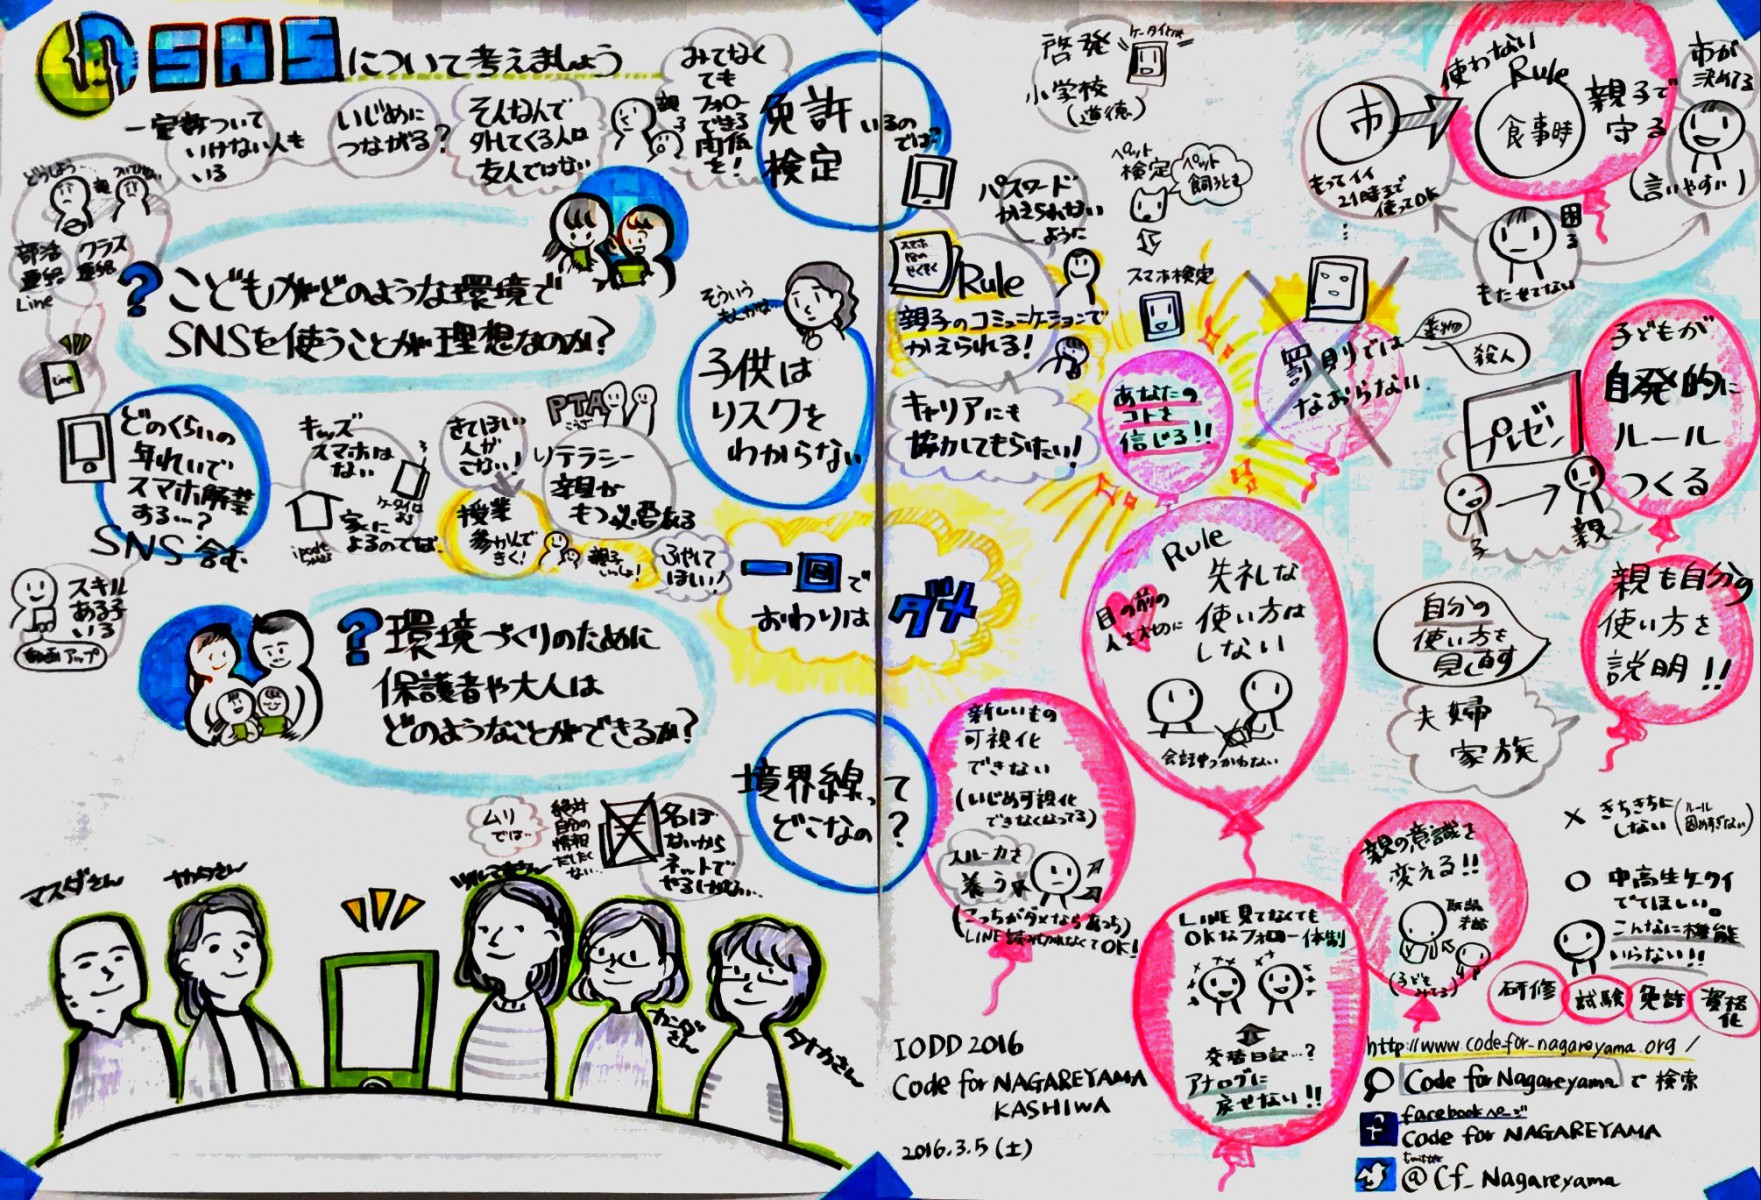 SNSについて考えましょう
一定数ついて
いけない人も
いる
いじめに
つながる?
そんなんで
外してくる人は
友人ではない
みてなく
ても
フォロー
できる
関係
を!
親
免許いるの
検定では?
どうしよう…
部活
連絡
Line
クラス
連絡
?こどもがどのような環境で
SNSを使うことが理想なのか?
そういう
もんかな…
子供は
リスクを
わからない
Line
どのくらいの
年れいで
スマホ解禁
する…?
SNS含む
キッズ
スマホは
ない
家に
よるのでは
きてほしい
人が
こない!
PTA
リテラシー
親が
もつ必要ある
授業
参かんで
きく!
ふやして
ほしい!
一回で
おわりは
ダメ
スキル
ある子
いる
動画アップ
?環境づくりのために
保護者や大人は
どのようなことができるか?
境界線って
どこなの?
ムリ
では…
絶対
自分の
情報
だしたく
ない…
名ぼ
ないから
ネットで
やるしかない…
マスダさん
タナカさん
啓発
小学校
(道徳)
パスワード
かえられない
ように
ペット
検定
ペット
飼うとき
スマホ検定
Rule
親子のコミュニケーションで
かえられる!
キャリアにも
協力してもらいたい!
あなたの
コトを
信じる!!
罰則では
なおらない
薬物
殺人
市
もってイイ
21時まで
使ってOK
使わない
Rule
食事時
親子で
守る
市が
決めてる
(言いやすい)
困る
もたせてない
子どもが
自発的に
ルール
つくる
プレゼン
子
親
Rule
失礼な
使い方は
しない
目の前の
人を大切に
会話中つかわない
自分の
使い方を
見し直す
夫婦
家族
親も自分の
使い方を
説明!!
新しいもの
可視化
できない
(いじめ可視化
できなくなってる)
スルー力を
養う
(こっちがダメならあっち)
LINE 見てなくても
OKなフォロー体制
交替日記…?
アナログに
戻せない!!
親の意識を
変える!!
(子ども
みてる)
× きちきちに
しない
(ルール
固めすぎない)
○ 中高生ケータイ
でてほしい。
こんなに機能
いらない!!
研修
試験
免許
資格
化
IODD 2016
Code for NAGAREYAMA
KASHIWA
2016.3.5(土)
http://www.code-for-nagareyama.org/
Code for Nagareyama で検索
facebookページ
Code for NAGAREYAMA
twitter
@Cf_Nagareyama